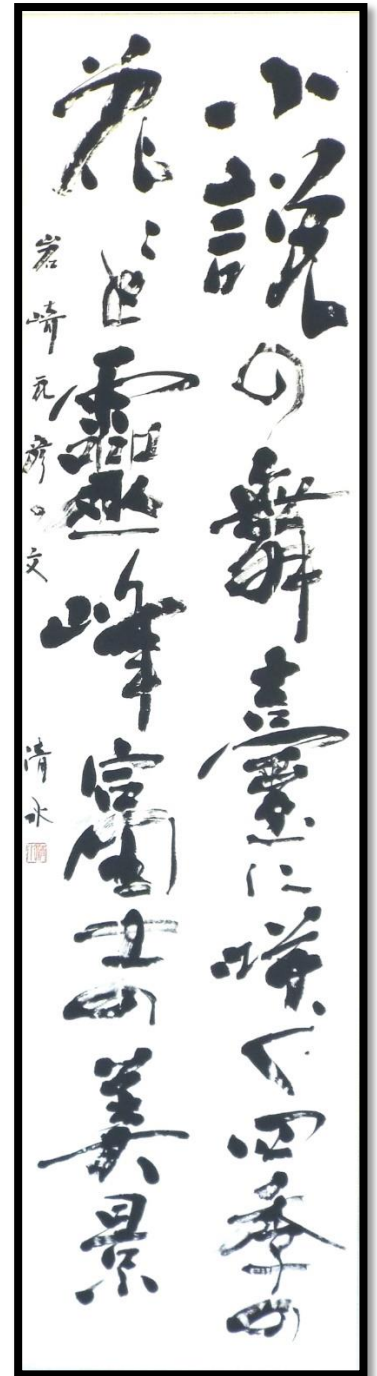 小説の舞臺に咲く四季の
花と靈峰富士の美景
岩崎元彦の文
清水